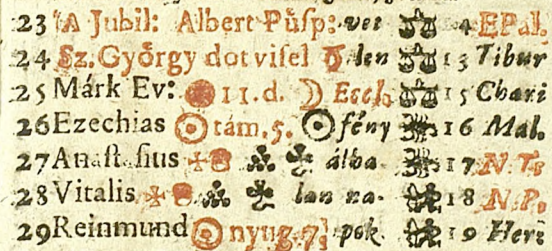 23 A Jubil: Albert Půsp: vet 4 EPal.
24 Sz. György dotvisel len 13 Tibur
25 Márk Ev: 11.d. Eccl. 15 Chari
26 Ezechias tám. 5. fény 16 Mal.
27 Anastasius álba 17 N. T.
28 Vitalis lan na- 18 N. P.
29 Reinmund nyug. 7. pok. 19 Heri